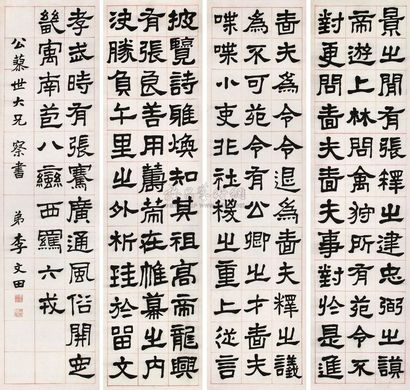 景之間有張釋之建忠弼之謨
帝遊上林問禽狩所有苑令不
對更問嗇夫嗇夫事對於是進
嗇夫為令令退為嗇夫釋之議
為不可苑令有公卿之才嗇夫
喋喋小吏非社稷之重上從言
披覽詩雅煥知其祖高帝龍興
有張良善用籌策在帷幕之內
決勝負千里之外析珪於留文
孝武時有張騫廣通風俗開定
畿寓南苞八蠻西羈六戎
公藜世大兄 察書 弟李文田